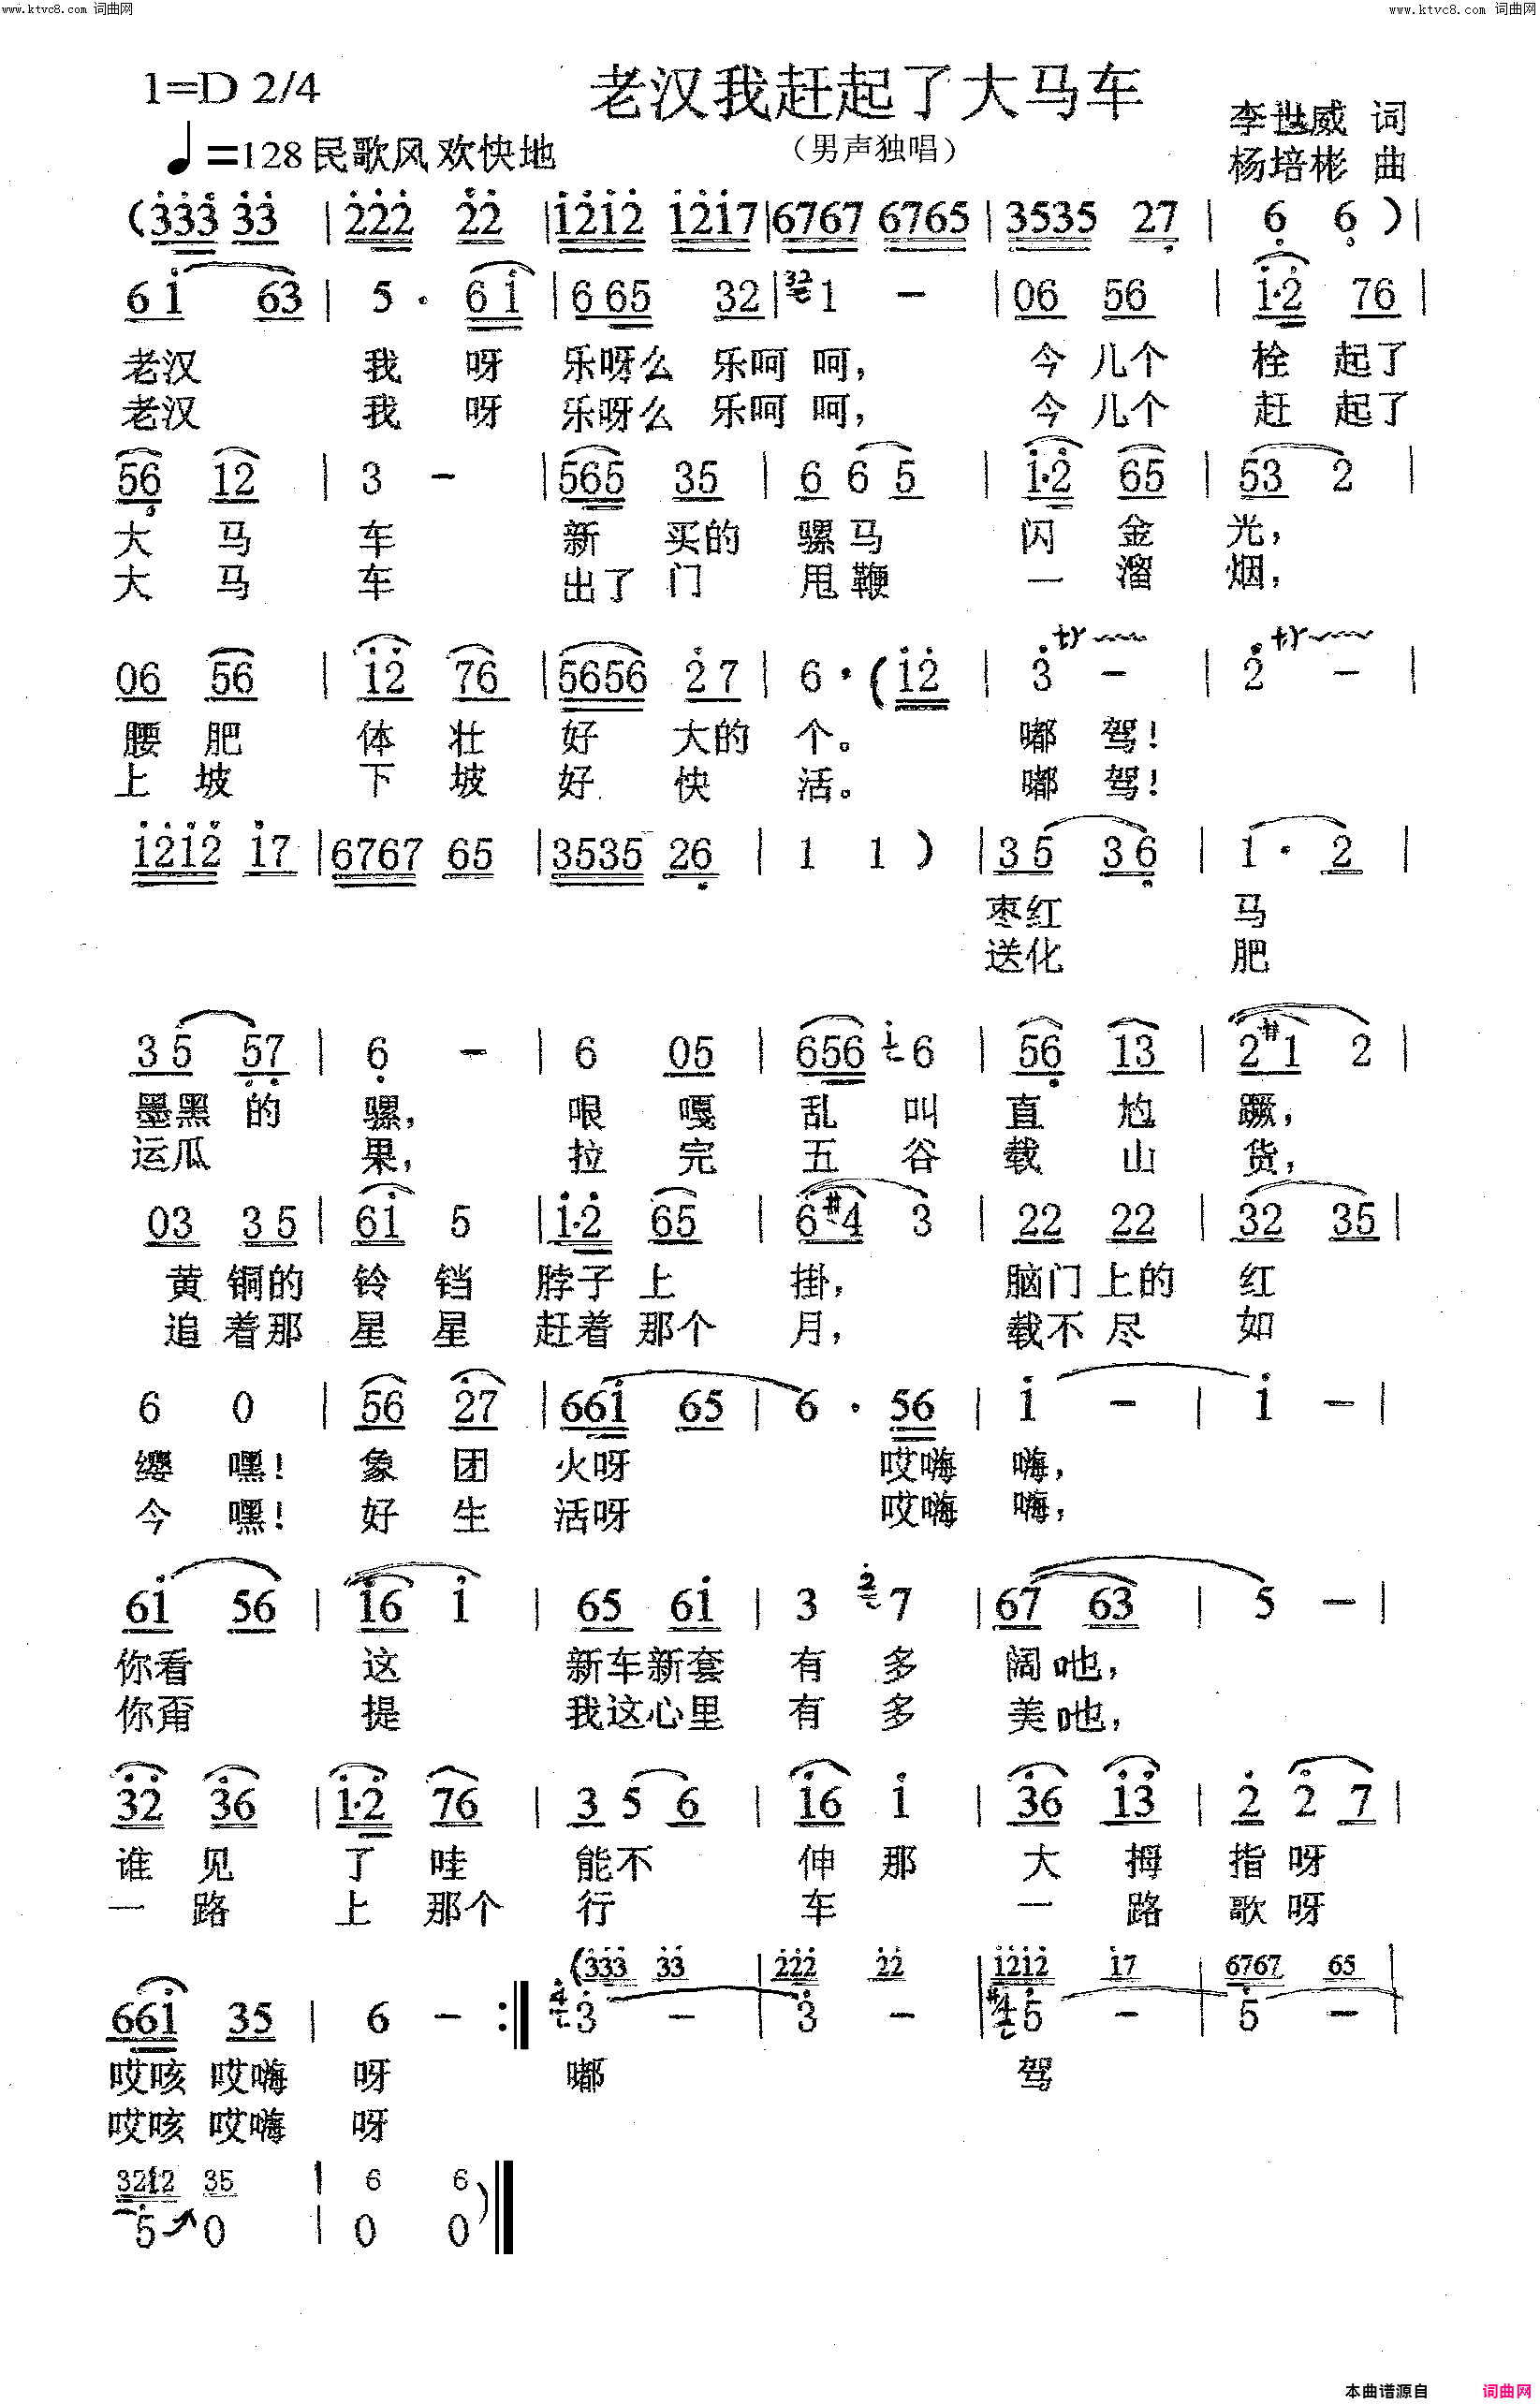 www.ktvc8.com 词曲网 www.ktvc8.com 词曲网
1=D 2/4 老汉我赶起了大马车 李世威 词
♩=128 民歌风 欢快地 (男声独唱) 杨培彬 曲
(333 33 | 222 22 | 1212 1217 | 6767 6765 | 3535 27 | 6 6 ) |
61 63 | 5 · 61 | 665 32 | 32 1 - | 06 56 | 1·2 76 |
老汉 我 呀 乐呀么 乐呵 呵, 今 儿个 栓 起了
老汉 我 呀 乐呀么 乐呵 呵, 今 儿个 赶 起了
56 12 | 3 - | 565 35 | 6 6 5 | 1·2 65 | 53 2 |
大 马 车 新 买的 骡马 闪 金 光,
大 马 车 出了门 甩鞭 一 溜 烟,
06 56 | 12 76 | 5656 27 | 6 · (12 | 3 - | 2 - |
腰 肥 体 壮 好 大的 个。 嘟 驾!
上 坡 下 坡 好 快 活。 嘟 驾!
1212 17 | 6767 65 | 3535 26 | 1 1 ) | 35 36 | 1 · 2 |
枣红 马
送化 肥
35 57 | 6 - | 6 05 | 656 1 6 | 56 13 | 2#1 2 |
墨黑 的 骡, 哏 嘎 乱 叫 直 尥 蹶,
运瓜 果, 拉 完 五 谷 载 山 货,
03 35 | 61 5 | 1·2 65 | 6#4 3 | 22 22 | 32 35 |
黄 铜的 铃 铛 脖子 上 掛, 脑门 上的 红
追 着那 星 星 赶着 那个 月, 载不 尽 如
6 0 | 56 27 | 661 65 | 6 · 56 | 1 - | 1 - |
缨 嘿! 象 团 火呀 哎嗨 嗨,
今 嘿! 好 生 活呀 哎嗨 嗨,
61 56 | 16 1 | 65 61 | 3 2 7 | 67 63 | 5 - |
你看 这 新车新套 有 多 阔吔,
你甭 提 我这心里 有 多 美吔,
32 36 | 1·2 76 | 3 5 6 | 16 1 | 36 13 | 2 2 7 |
谁 见 了 哇 能不 伸 那 大 拇 指 呀
一 路 上 那个 行 车 一 路 歌 呀
(333 33 | 222 22 | 1212 17 | 6767 65 |
661 35 | 6 - :‖ 4 3 - | 3 - | #4 5 - | 5 - |
哎咳 哎嗨 呀 嘟 驾
哎咳 哎嗨 呀
3212 35 | 6 6 )
5 0 | 0 0 ‖
本曲谱源自 词曲网